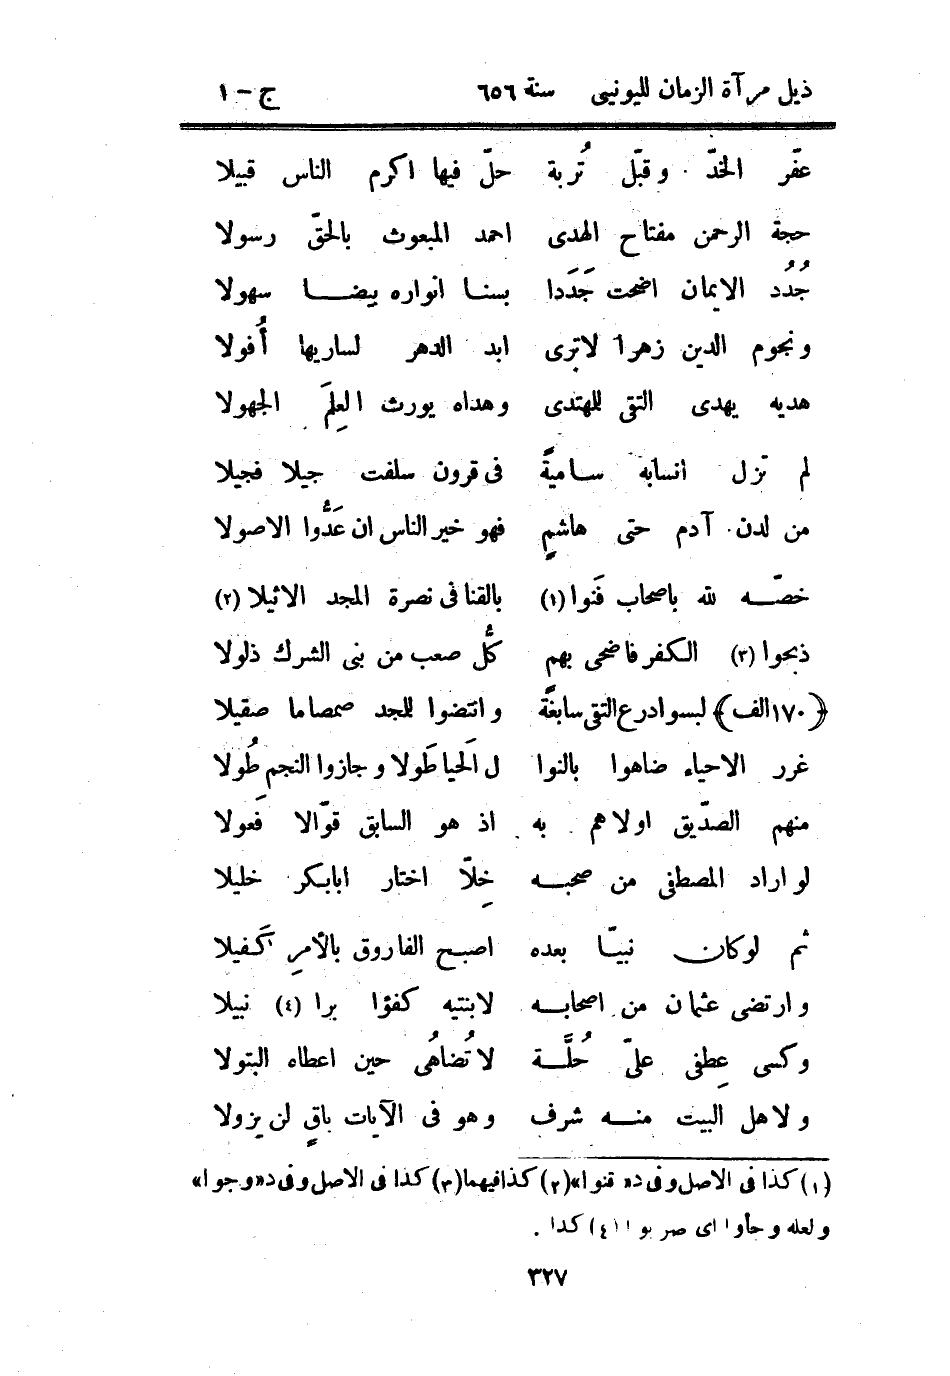 ذيل مرآة الزمان لليونيى سنة ٦٥٦ ج - ١
عفّر الخدّ وقبّل تُربة حلّ فيها اكرم الناس قبيلا
حجة الرحمن مفتاح الهدى احمد المبعوث بالحقّ رسولا
جُدُد الايمان اضحت جَدَدا بسنا انواره بيضا سهولا
ونجوم الدين زهرا لاترى ابد الدهر لساريها أُفولا
هديه يهدى التقى للهتدى وهداه يورث العِلمَ الجهولا
لم تزل انسابه ساميةً فى قرون سلفت جيلا فجيلا
من لدن آدم حتى هاشمٍ فهو خير الناس ان عَدُّوا الاصولا
خصّه لله باصحاب فَنوا (١) بالقنا فى نصرة المجد الاثيلا (٢)
ذبحوا (٣) الكفر فاضحى بهم كُّل صعب من بنى الشرك ذلولا
﴿١٧٠ الف﴾ لبسوا درع التقى سابغةً وانتضوا للجد صمصاما صقيلا
غرر الاحياء ضاهوا بالنوا ل الَحيا طَولا وجازوا النجم طُولا
منهم الصدّيق اولاهم به اذ هو السابق قوّالا فَعولا
لو اراد المصطفى من صحبه خِلّا اختار ابابكر خليلا
ثم لوكان نبيّا بعده اصبح الفاروق بالأمرِ كَفيلا
وارتضى عثمان من اصحابه لابنتيه كفؤا برا (٤) نبيلا
وكسى عِطفى علىّ حُلَّة لا تُضاهُى حين اعطاه البتولا
ولاهل البيت منه شرف وهو فى الآيات باقٍ لن يزولا
(١) كذا فى الاصل وفى د« قنوا» (٢) كذا فيهما (٣) كذا فى الاصل وفى د«وجوا»
ولعله وجأوا اى ضربوا (٤) كذا .
٣٢٧